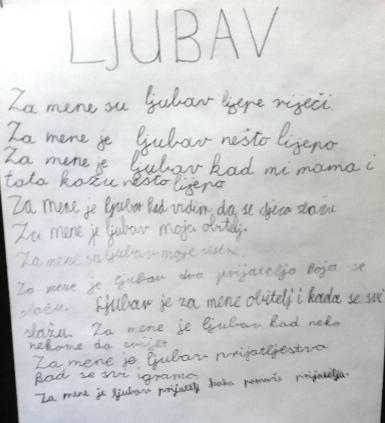 LJUBAV
Za mene su ljubav lijepe riječi.
Za mene je ljubav nešto lijepo
Za mene je ljubav kad mi mama i
tata kažu nešto lijepo
Za mene je ljubav kad vidim da se djeca slažu
Za mene je ljubav moja obitelj.
Za mene su ljubav moje sestre.
Za mene je ljubav dva prijatelja koja se
slažu. Ljubav je za mene obitelj i kada se svi
slažu. Za mene je ljubav kad neko
nekome da cvijet
Za mene je ljubav prijatljestva
kad se svi igramo
Za mene je ljubav prijatelj kako pomaže prijatelju.